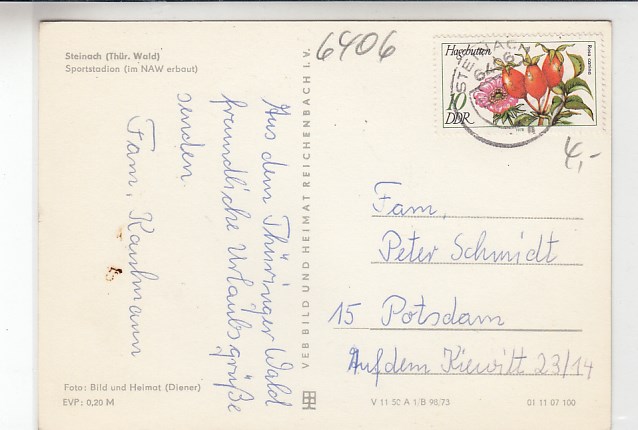 Steinach (Thür. Wald)
Sportstadion (im NAW erbaut)
6406
Hagebutten
Rosa canina
10
DDR
4,-
Aus dem Thüringer Wald
freundliche Urlaubsgrüße
senden
Fam. Kaulmann
VEB BILD UND HEIMAT REICHENBACH I. V.
Fam.
Peter Schmidt
15 Potsdam
Auf dem Kiewitt 23/14
Foto: Bild und Heimat (Diener)
EVP: 0,20 M
V 11 50 A 1/B 98/73
01 11 07 100